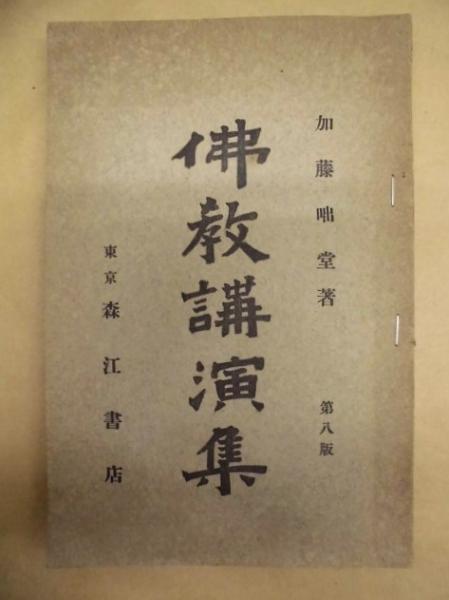 加藤咄堂著
第八版
佛教講演集
東京 森江書店